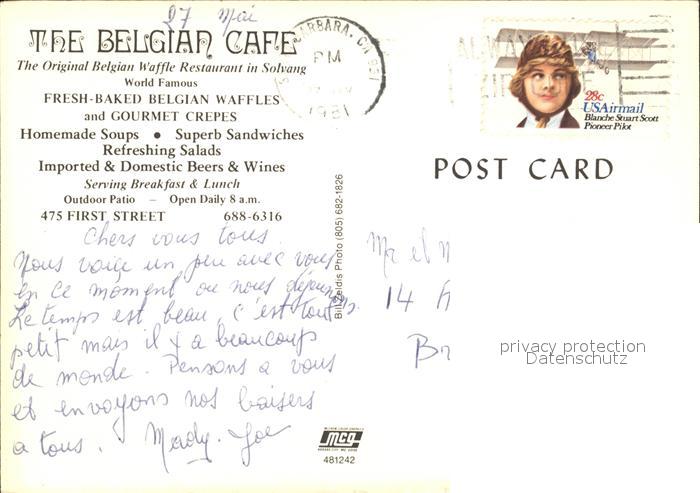 27 Mai
THE BELGIAN CAFE
The Original Belgian Waffle Restaurant in Solvang
World Famous
FRESH-BAKED BELGIAN WAFFLES
and GOURMET CREPES
Homemade Soups • Superb Sandwiches
Refreshing Salads
Imported & Domestic Beers & Wines
Serving Breakfast & Lunch
Outdoor Patio – Open Daily 8 a.m.
475 FIRST STREET 688-6316
Chers vous tous.
Nous voici un peu avec vous
en ce moment ou nous déjeunons.
Le temps est beau, c'est tout
petit mais il y a beaucoup
de monde. Pensons a vous
et envoyons nos baisers
a tous. Mady. Joe
Bill Zeldis Photo (805) 682-1826
mcg
481242
BARBARA, CA 931
PM
1981
28c
USAirmail
Blanche Stuart Scott
Pioneer Pilot
POST CARD
Mr et M
14 A
Br
privacy protection
Datenschutz